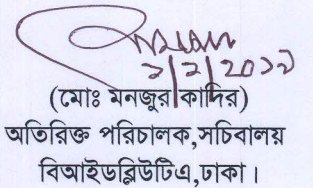 ২/২/২০১৯
(মোঃ মনজুর কাদির)
অতিরিক্ত পরিচালক,সচিবালয়
বিআইডব্লিউটিএ,ঢাকা।